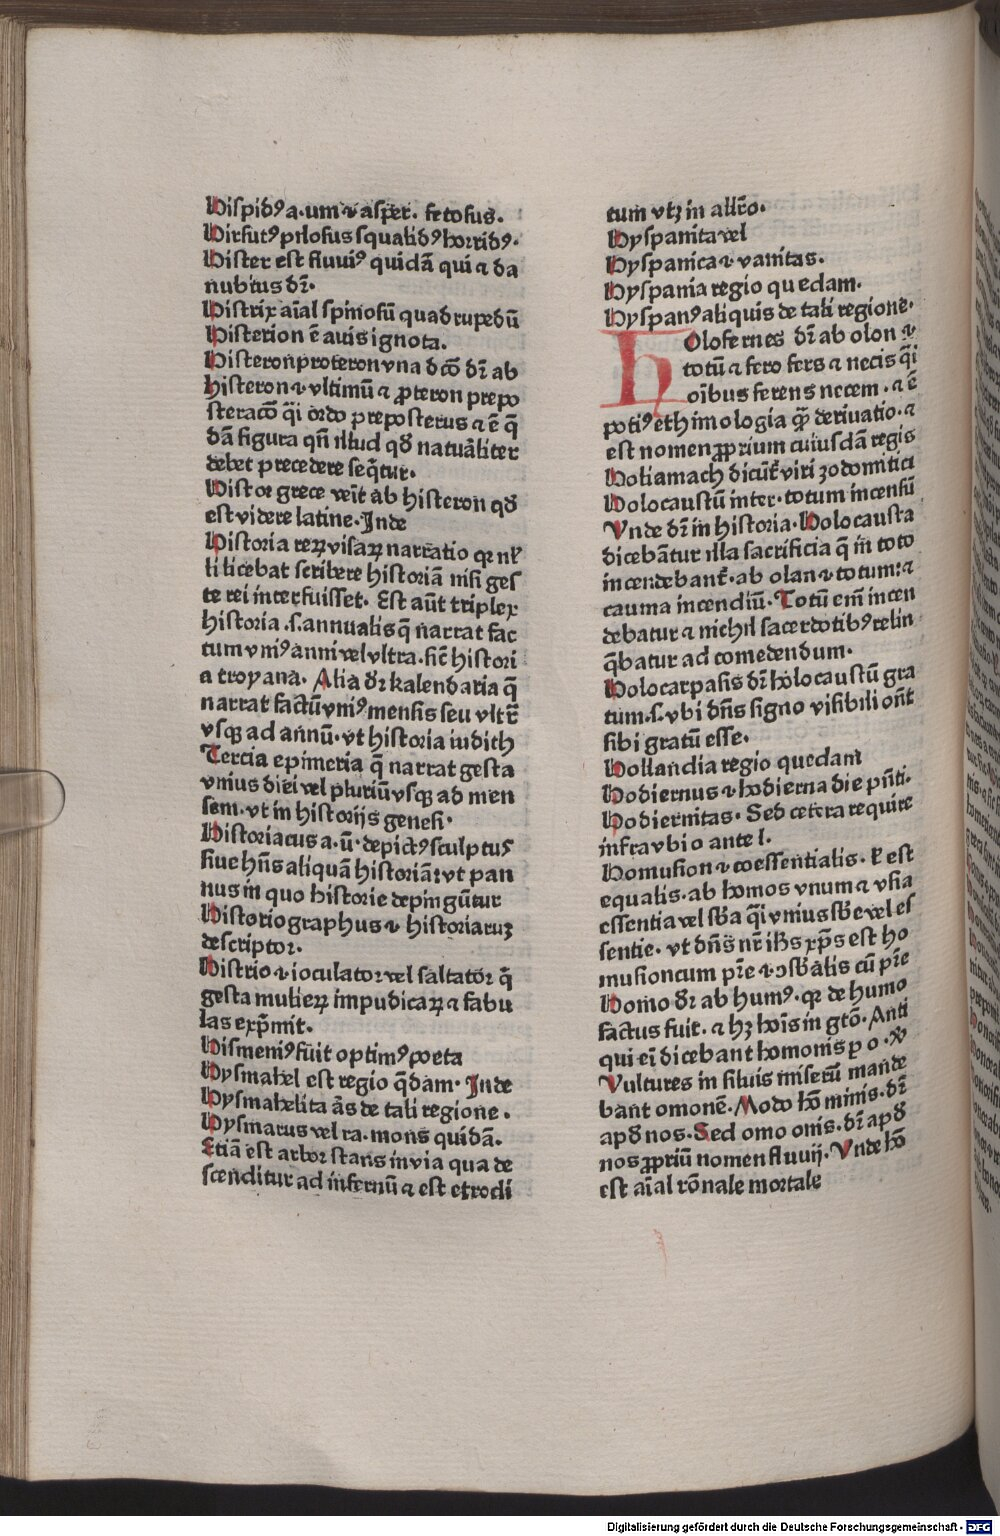 Hispidꝰ a·um ⁊ asper. setosus.
Hirsutꝰ pilosus squalidꝰ horridꝰ·
Hister est fluuiꝰ quidā qui ⁊ da
nubius dr̄·
Histrix aīal spinosū quadrupedū
Histerion ē auis ignota.
Histeronproteron vna dcō dr̄ ab
histeron ⁊ vltimū ⁊ ꝓteron prepo
steracō q̄i ordo preposterus ⁊ ē q̄
dā figura qn̄ illud qd̄ naturaliter
debet precedere seq̄tur·
Histor grece veīt ab histeron qd̄
est videre latine·Inde
Historia reꝝ visaꝝ narratio qꝛ nł
li licebat scribere historiā nisi ges
te rei interfuisset· Est aūt triplex
historia ·s·annualis q̄ narrat fac
tum vniꝰ anni vel vltra·sic̄ histori
a troyana· Alia dr̄ kalendaria q̄
narrat factū vniꝰ mensis seu vltr̄
vsqꝫ ad annū·vt historia iudith
Tercia epimeria q̄ narrat gesta
vnius diei vel pluriū vsqꝫ ad men
sem·vt in historijs genesi·
Historiacus a·ū·depictꝰ sculptus
siue hn̄s aliquā historiā: vt pan
nus in quo historie depingūtur
Historiographus ⁊ historiaruꝫ
descriptor.
Histrio ⁊ ioculator vel saltator q̄
gesta mulieꝝ impudicaꝝ ⁊ fabu
las exp̄mit·
Hismeniꝰ fuit optimꝰ poeta
Hysmahel est regio q̄dam· Inde
Hysmahelita ās de tali regione·
Hysmarus vel ra·mons quidā·
Etiā est arbor stans in via qua de
scenditur ad infernū ⁊ est etrocli
tum vtꝫ in allr̄o·
Hyspanita vel
Hyspanica ⁊ vanitas·
Hyspania regio quedam·
Hyspanꝰ aliquis de tali regione·
Holofernes dr̄ ab olon ⁊
totū ⁊ fero fers ⁊ necis q̄i
oībus ferens necem·⁊ ē
potiꝰ ethimologia qꝫ deriuatio·⁊
est nomen ꝓprium cuiusdā regis
Holiamach dicūt᷑ viri zodomitici
Holocaustū inter·totum incensū
Vnde dr̄ in historia·Holocausta
dicebātur illa sacrificia q̄ in toto
incendebant᷑·ab olan ⁊ totum: ⁊
cauma incendiū·Totū em̄ incen
debatur ⁊ nichil sacerdotibꝰ relin
q̄batur ad comedendum·
Holocarpasis dr̄ holocaustū gra
tum·s·vbi dn̄s signo visibili on̄t
sibi gratū esse·
Hollandia regio quedam
Hodiernus ⁊ hodierna die pn̄ti·
Hodiernitas· Sed cetera require
infra vbi o ante l·
Homusion ⁊ coessentialis· ł est
equalis·ab homos vnum ⁊ vsia
essentia vel sb̄a q̄i vnius sb̄e vel es
sentie· vt dn̄s nr̄ ih̄s xp̄s est ho
musion cum pr̄e ⁊ ↄsb̄alis cū pr̄e
Homo dr̄ ab humꝰ·qꝛ de humo
factus fuit·⁊ hꝫ hoīs in gtō· Anti
qui eī dicebant homonis p o· xͮ
Vultures in siluis miserū mande
bant omonē·Modo hō minis·dr̄
apd̄ nos·Sed omo onis·dr̄ apd̄
nos ꝓpriū nomen fluuij·Vnde hō
est aīal rōnale mortale
Digitalisierung gefördert durch die Deutsche Forschungsgemeinschaft - DFG